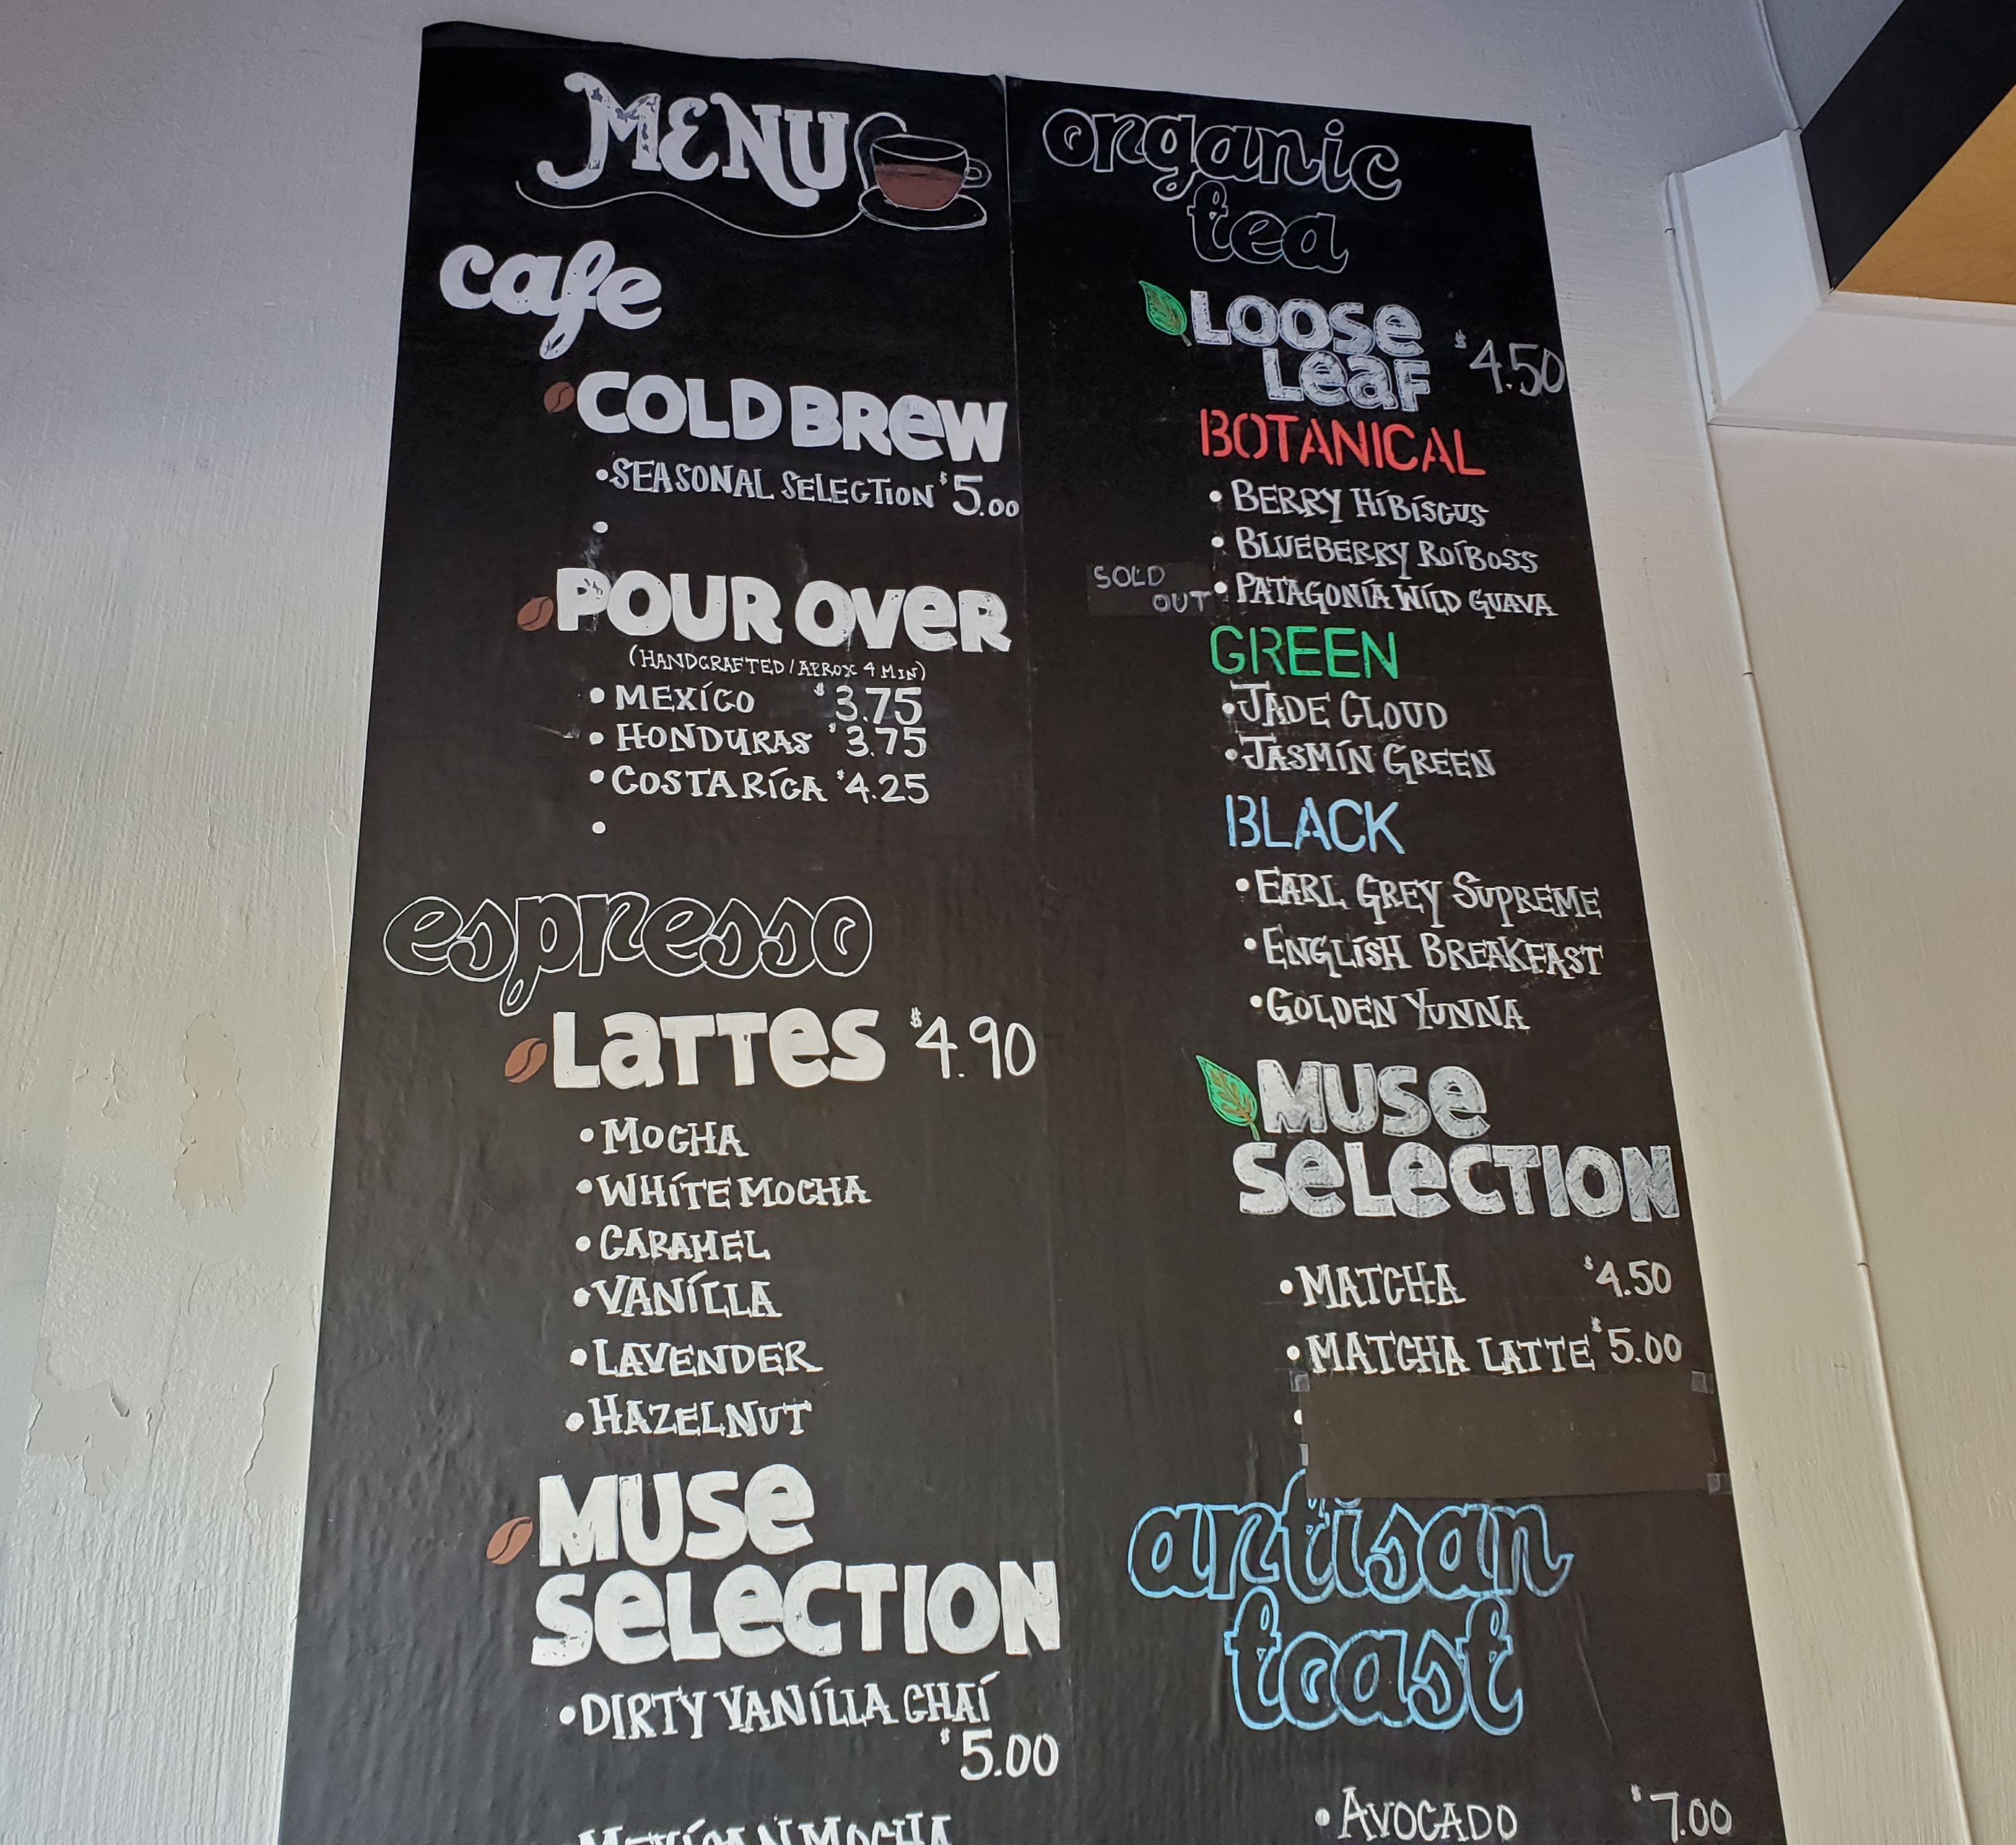 MENU
cafe
COLD BREW
•SEASONAL SELECTION $5.00
•
POUR OVER
(HANDCRAFTED/APROX 4 MIN)
• MEXÍCO $3.75
• HONDURAS $3.75
• COSTA RÍCA $4.25
•
espresso
LATTES $4.90
• MOCHA
• WHÍTE MOCHA
• CARAMEL
• VANÍLLA
• LAVENDER
• HAZELNUT
MUSE
SELECTION
• DIRTY VANÍLLA CHAÍ
$5.00
MEXÍCAN MOCHA
organic
tea
LOOSE
LEAF $4.50
BOTANICAL
• BERRY HÍBÍSCUS
• BLUEBERRY ROÍBOSS
SOLD
OUT
• PATAGONÍA WÍLD GUAVA
GREEN
• JADE CLOUD
• JASMÍN GREEN
BLACK
• EARL GREY SUPREME
• ENGLÍSH BREAKFAST
• GOLDEN YUNNA
MUSE
SELECTION
• MATCHA $4.50
• MATCHA LATTE $5.00
•
artisan
toast
• AVOCADO $7.00